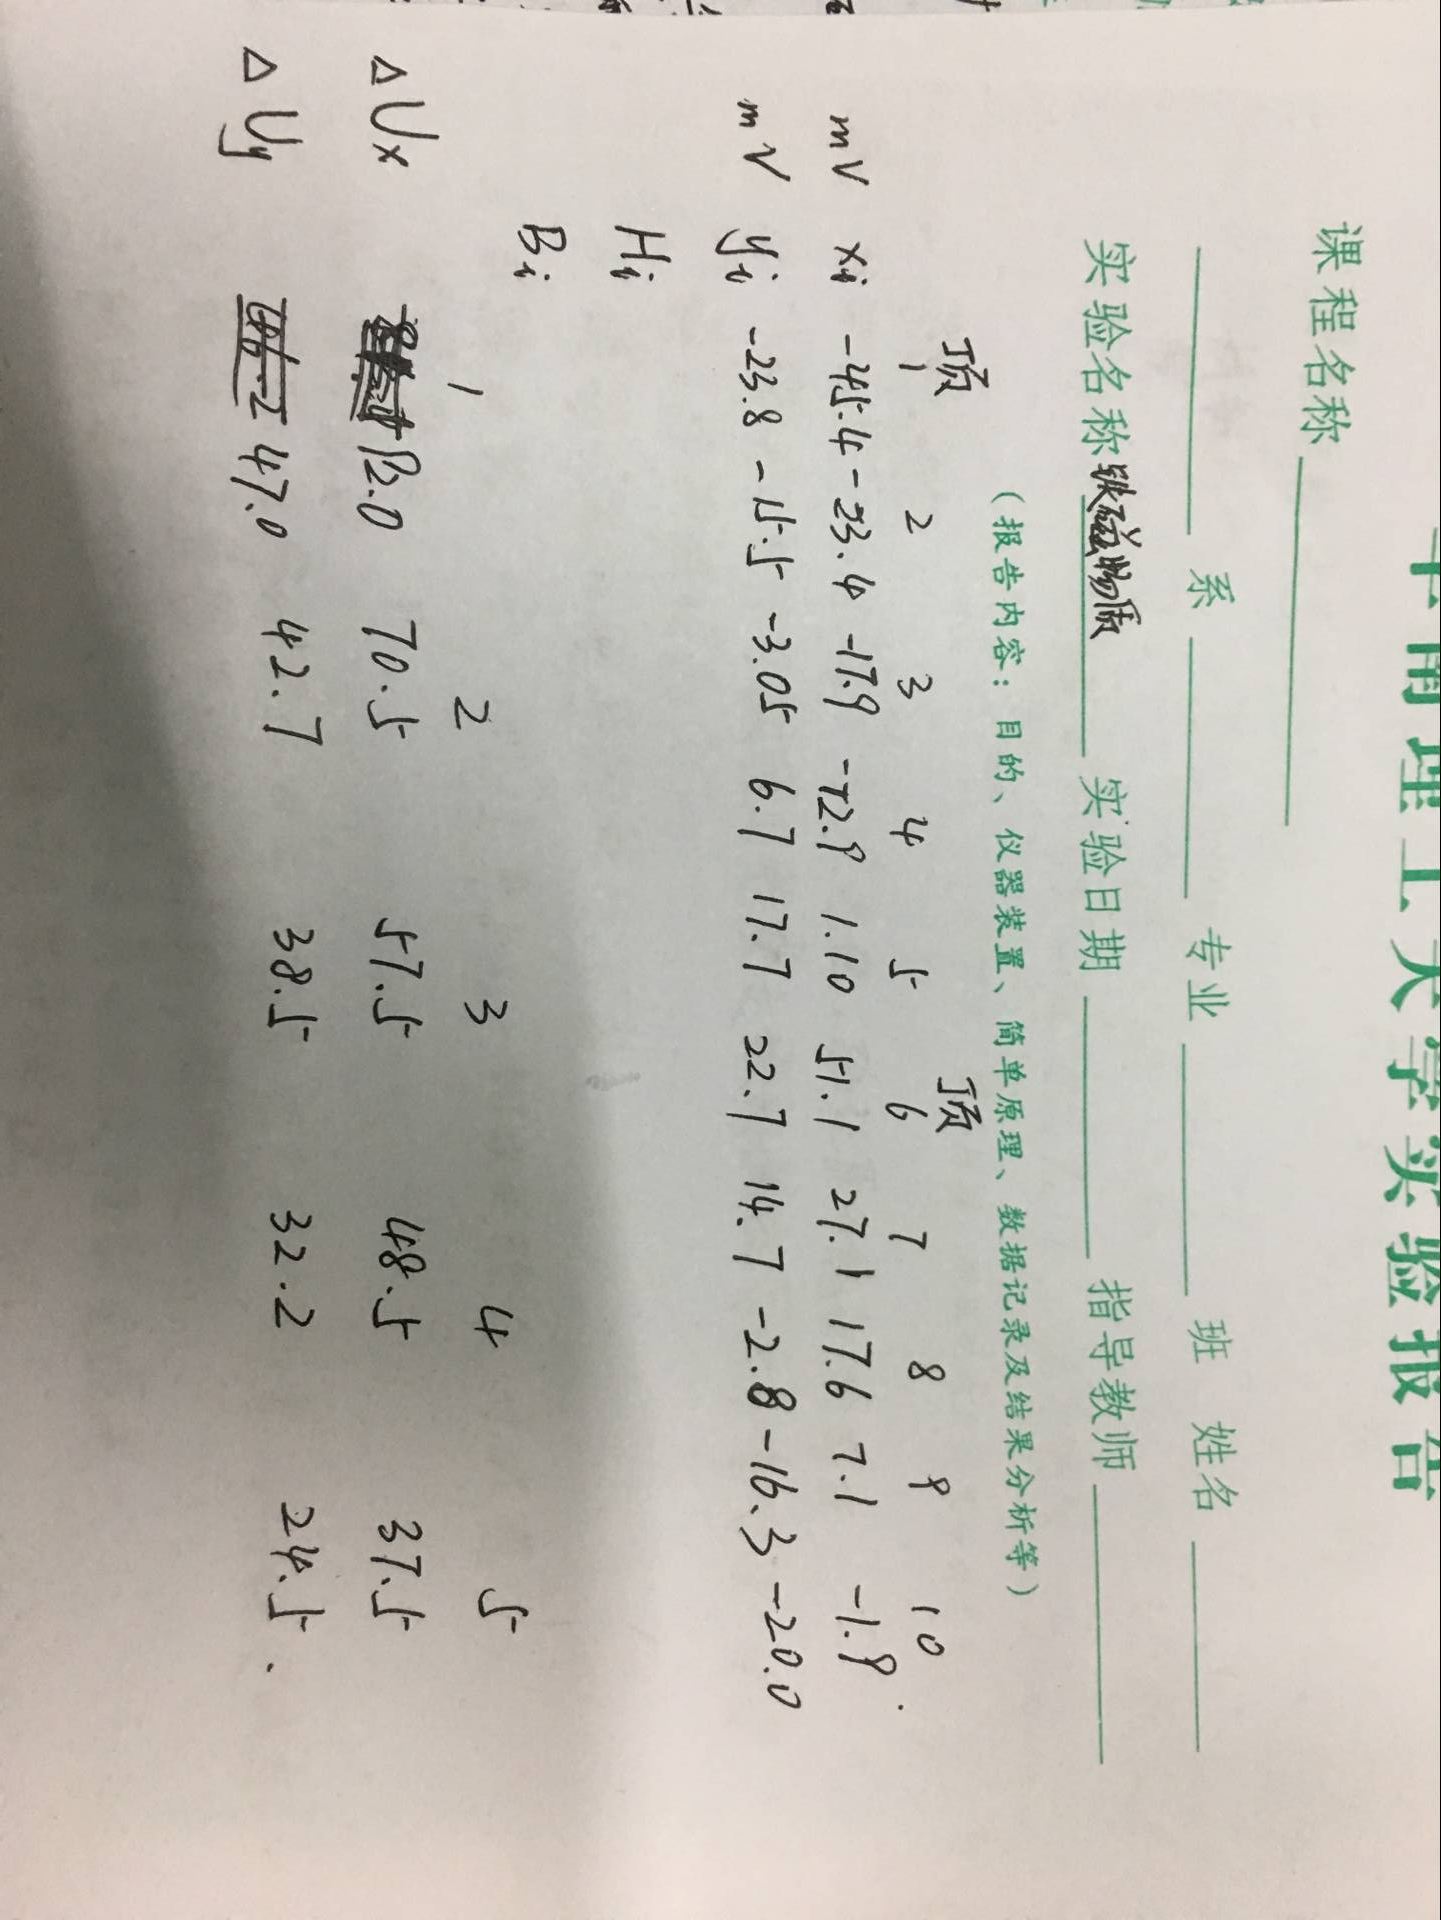 南理工大学实验报告
课程名称
系 专业 班 姓名
实验名称 铁磁物质 实验日期 指导教师
（报告内容：目的、仪器装置、简单原理、数据记录及结果分析等）
顶 顶
1 2 3 4 5 6 7 8 9 10
mV xi -45.4 -23.4 -17.9 -12.9 1.10 51.1 27.1 17.6 7.1 -1.9
mV yi -23.8 -15.5 -3.05 6.7 17.7 22.7 14.7 -2.8 -16.3 -20.0
Hi
Bi
1 2 3 4 5
△Ux 12.0 70.5 57.5 48.5 37.5
△Uy 47.0 42.7 38.5 32.2 24.5